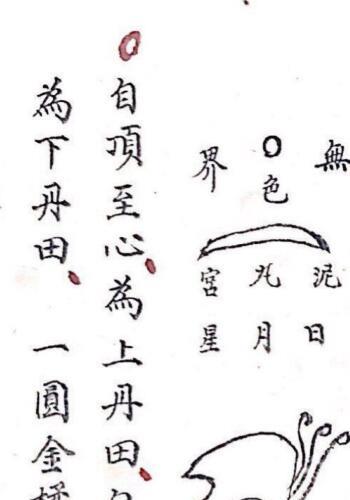 無色界
泥丸宮
日月星
自頂至心為上丹田
為下丹田 一圓金